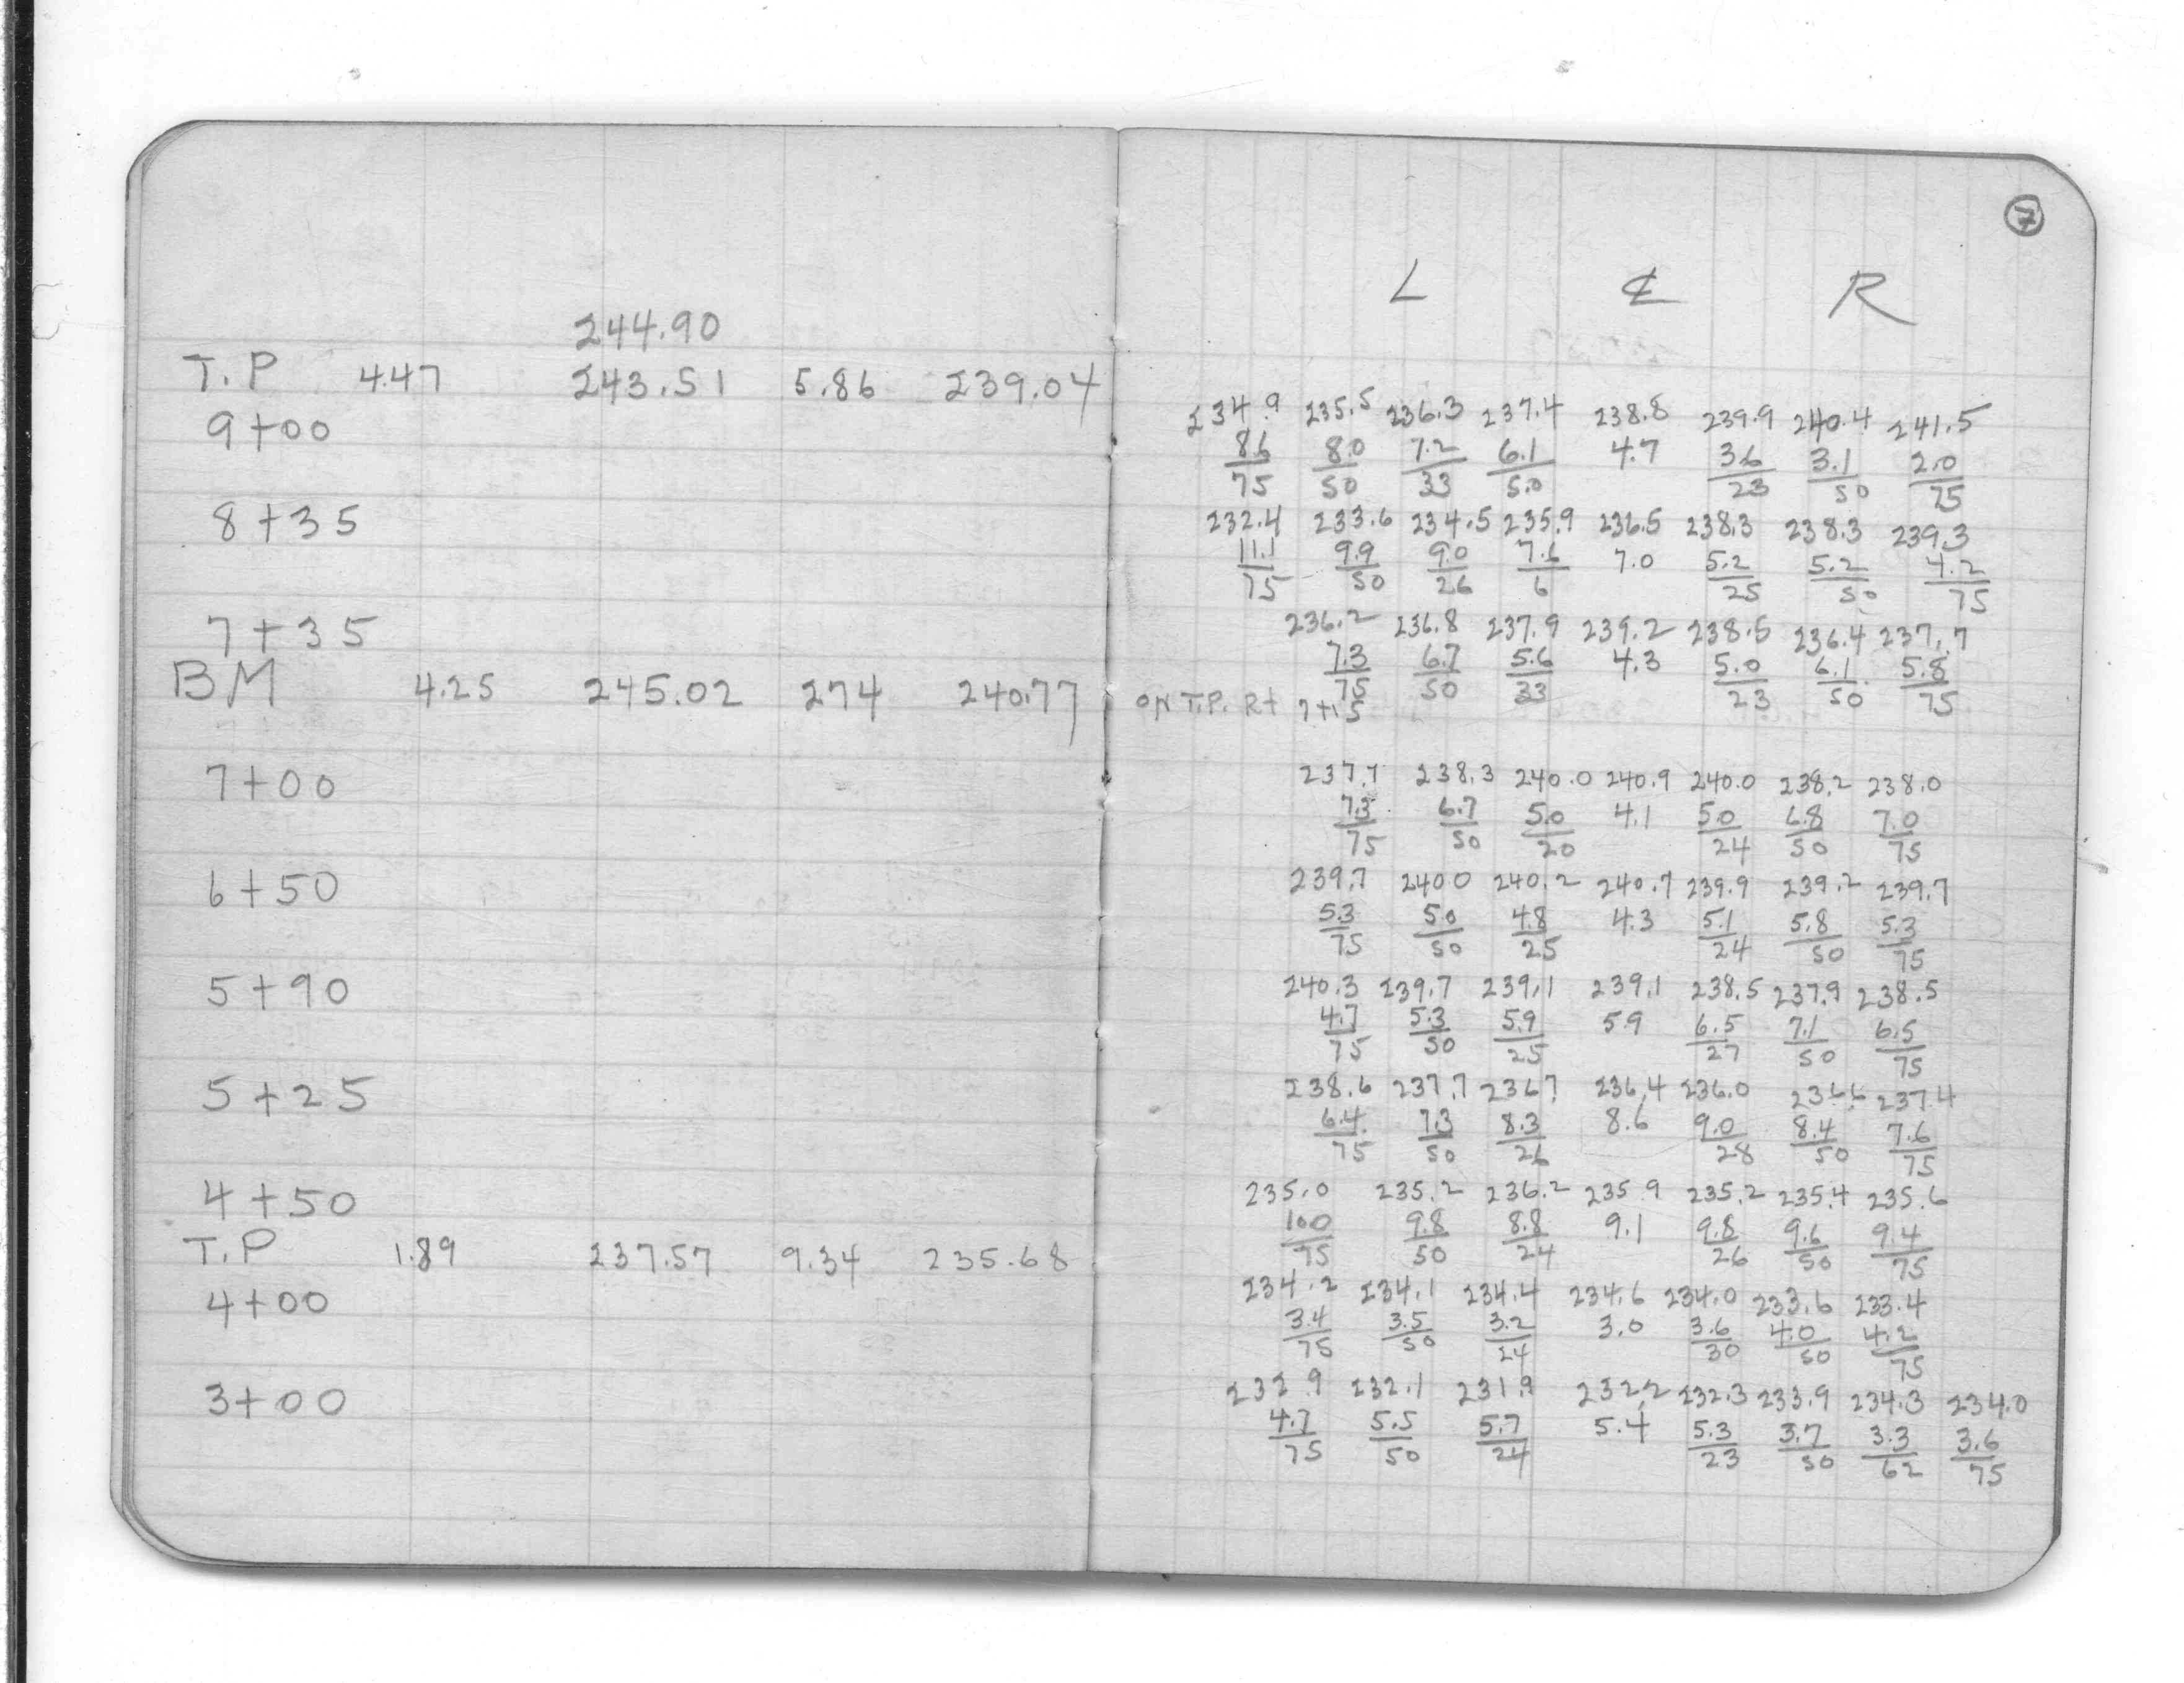 7
L ℄ R
244.90
T.P 4.47 243.51 5.86 239.04
9+00 234.9 235.5 236.3 237.4 238.8 239.9 240.4 241.5
8.6 8.0 7.2 6.1 4.7 3.6 3.1 2.0
75 50 33 5.0 23 50 75
8+35 232.4 233.6 234.5 235.9 236.5 238.3 238.3 239.3
11.1 9.9 9.0 7.6 7.0 5.2 5.2 4.2
75 50 26 6 25 50 75
7+35 236.2 236.8 237.9 239.2 238.5 236.4 237.7
7.3 6.7 5.6 4.3 5.0 6.1 5.8
75 50 33 23 50 75
BM 4.25 245.02 274 240.77 ON T.P. Rt 7+15
7+00 237.7 238.3 240.0 240.9 240.0 238.2 238.0
7.3 6.7 5.0 4.1 5.0 6.8 7.0
75 50 20 24 50 75
6+50 239.7 2400 240.2 240.7 239.9 239.2 239.7
5.3 5.0 4.8 4.3 5.1 5.8 5.3
75 50 25 24 50 75
5+90 240.3 239.7 239.1 239.1 238.5 237.9 238.5
4.7 5.3 5.9 5.9 6.5 7.1 6.5
75 50 25 27 50 75
5+25 238.6 237.7 236.7 236.4 236.0 236.6 237.4
6.4 7.3 8.3 8.6 9.0 8.4 7.6
75 50 26 28 50 75
4+50 235.0 235.2 236.2 235.9 235.2 235.4 235.6
10.0 9.8 8.8 9.1 9.8 9.6 9.4
75 50 24 26 50 75
T.P 1.89 237.57 9.34 235.68
4+00 234.2 234.1 234.4 234.6 234.0 233.6 233.4
3.4 3.5 3.2 3.0 3.6 4.0 4.2
75 50 24 30 50 75
3+00 232.9 232.1 231.9 232.2 232.3 233.9 234.3 234.0
4.7 5.5 5.7 5.4 5.3 3.7 3.3 3.6
75 50 24 23 50 62 75